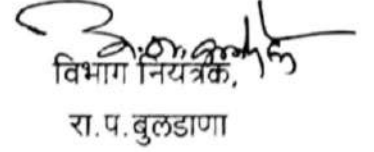 विभाग नियत्रक,
रा.प.बुलडाणा